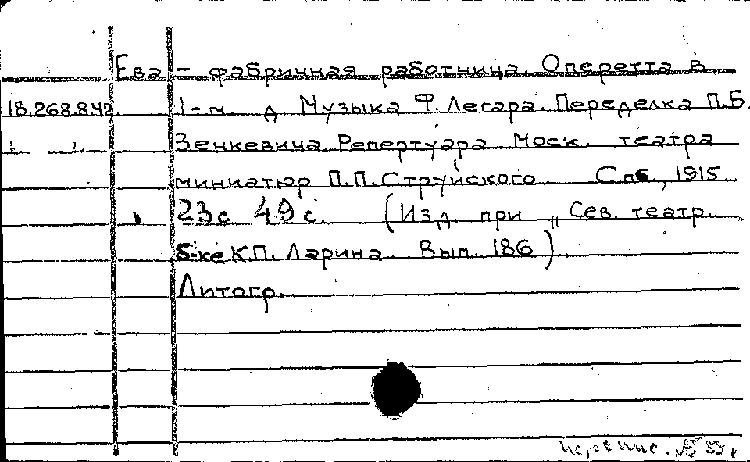 Ева – фабричная работница. Оперетта в
18.268.8.42. 1-м д Музыка Ф. Легара. Переделка П.Б.
Зенкевича. Репертуара Моск. театра
миниатюр П.П. Струйского Спб, 1915
23с 49 с. (Изд. при „Сев. театр.
б-ке К.П. Ларина. Вып. 186)
Литогр.